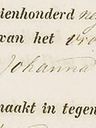 ienhonderd
van het
Johanna
aakt in tegen